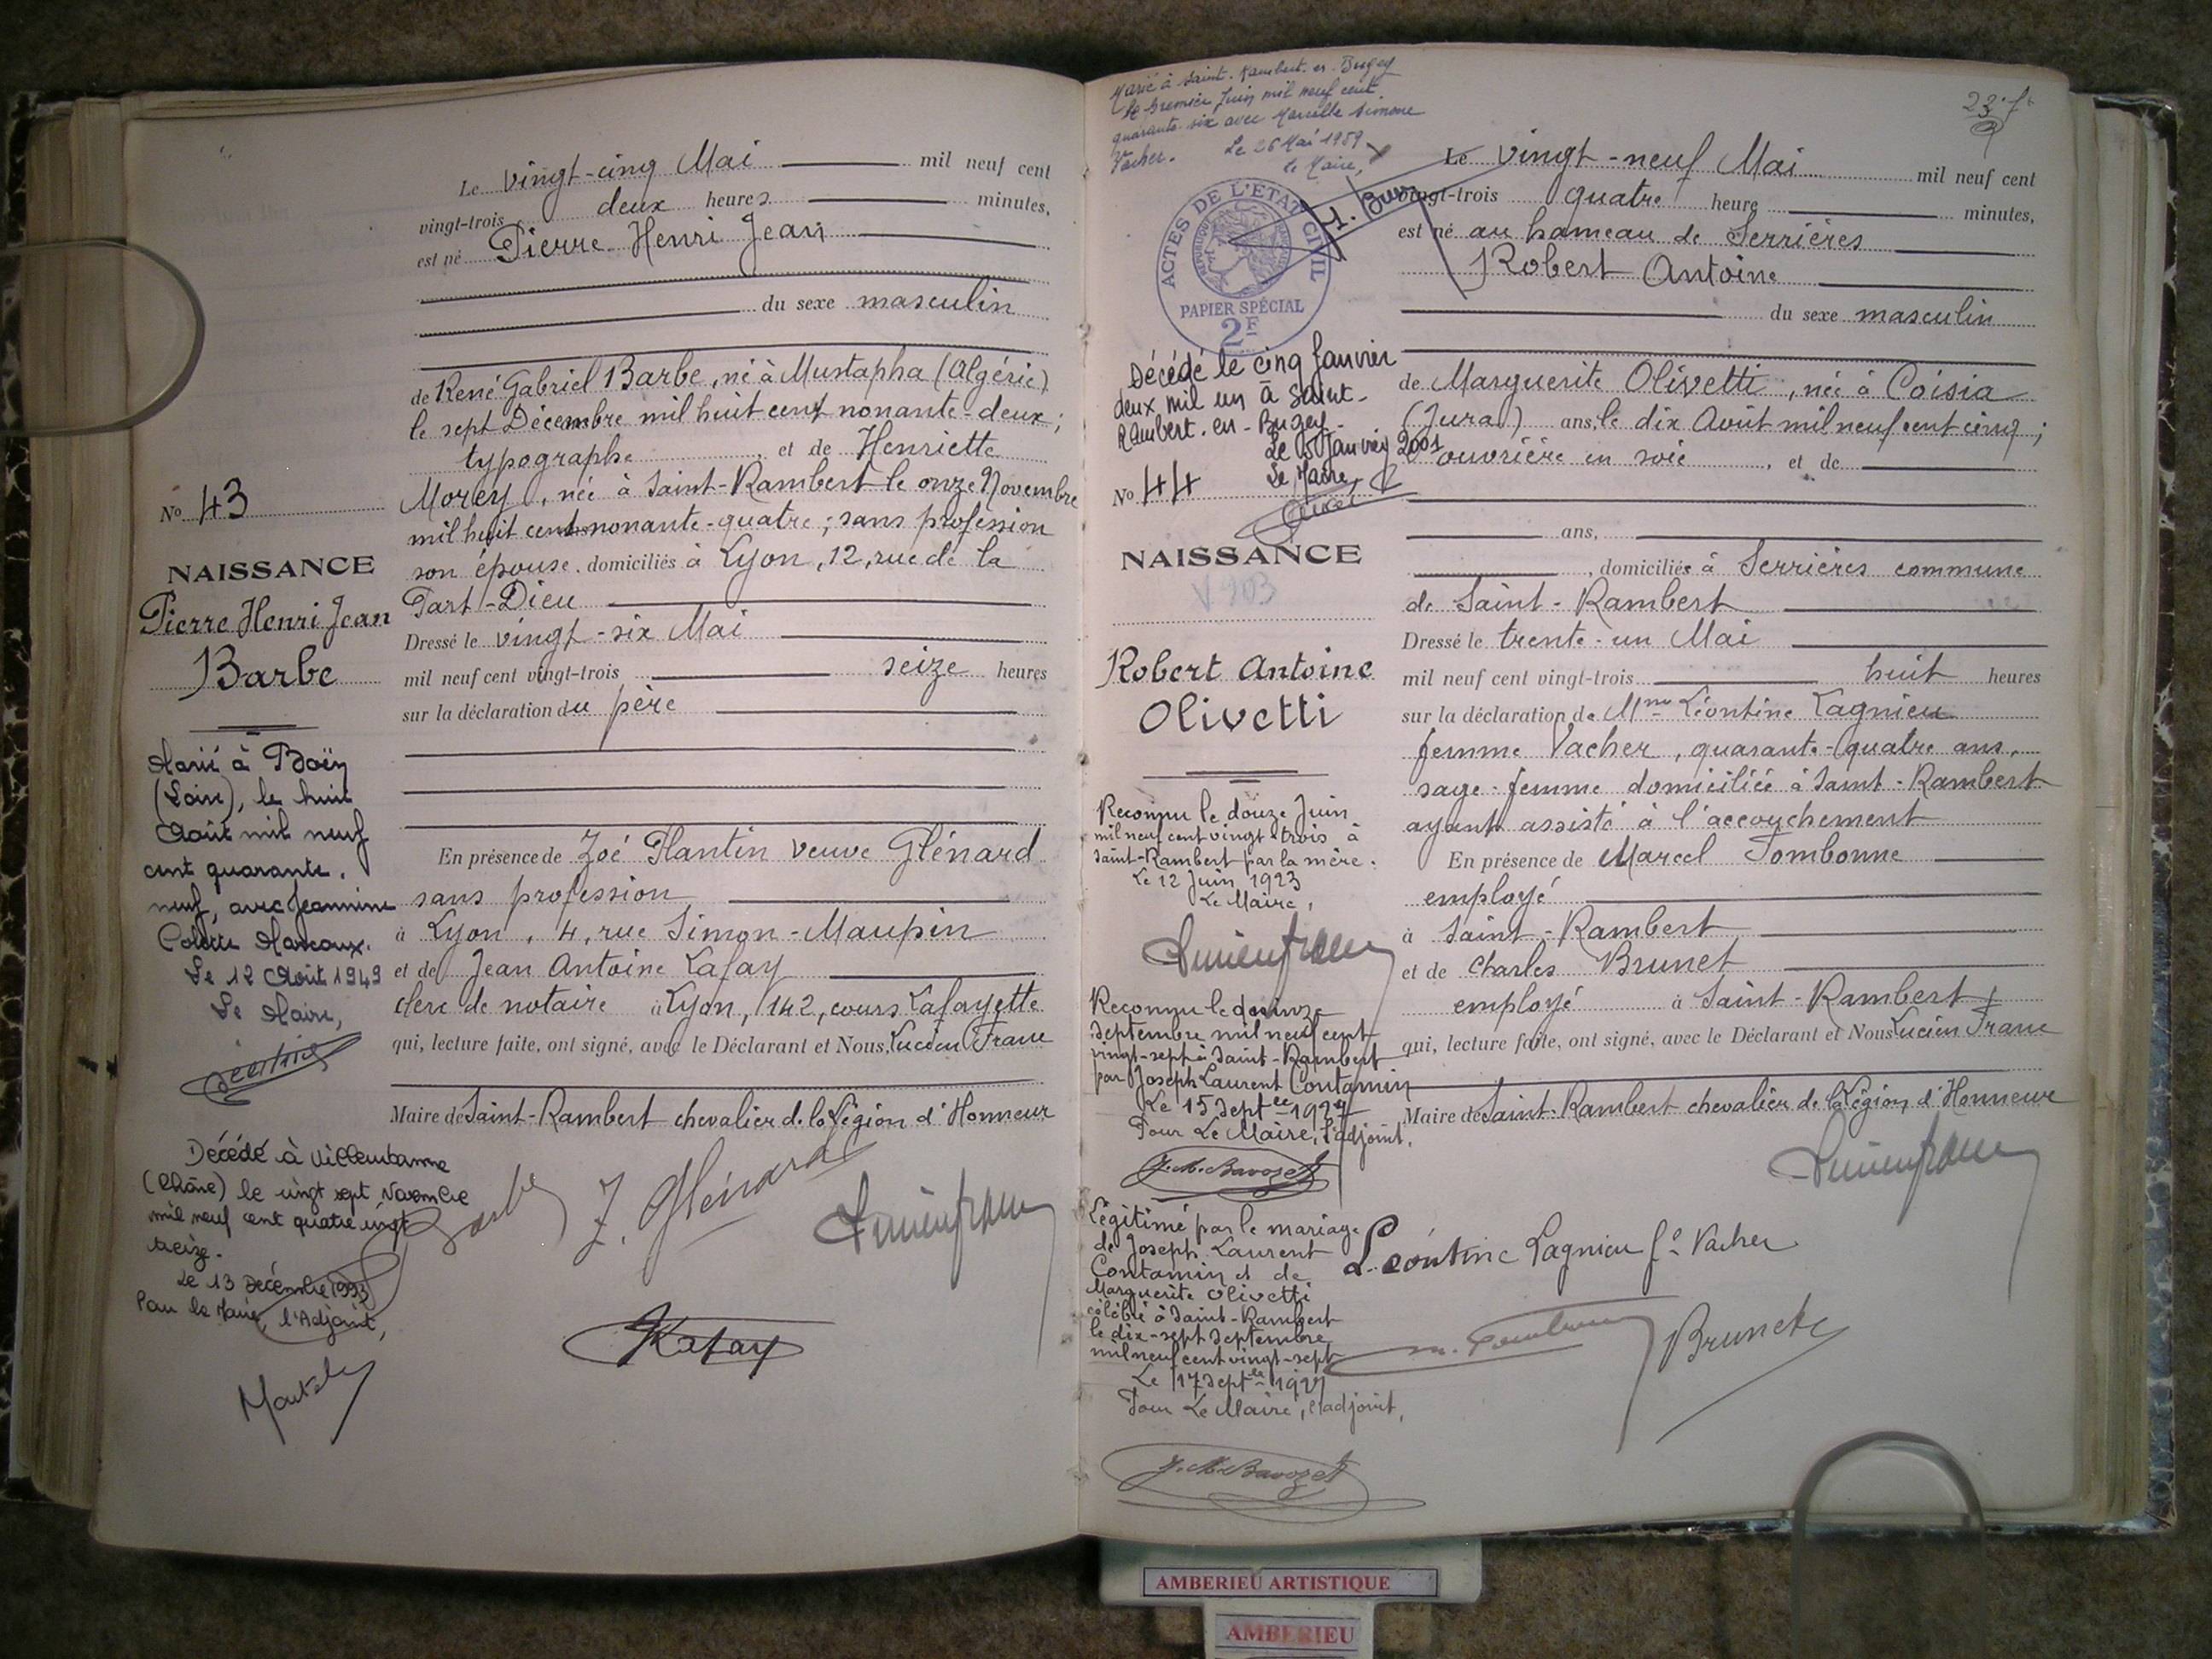 Le vingt-cinq Mai mil neuf cent
vingt-trois deux heures minutes,
est né Pierre Henri Jean
du sexe masculin
de René Gabriel Barbe, né à Mustapha (Algérie)
le sept Décembre mil huit cent nonante-deux;
typographe, et de Henriette
Morey, née à Saint-Rambert le onze Novembre
mil huit cent nonante-quatre; sans profession
son épouse. domiciliés à Lyon, 12, rue de la
Part-Dieu
Dressé le vingt-six Mai
mil neuf cent vingt-trois seize heures
sur la déclaration du père
En présence de Zoé Plantin veuve Glénard
sans profession
à Lyon, 4, rue Simon-Maupin
et de Jean Antoine Lafay
clerc de notaire à Lyon, 142, cours Lafayette
qui, lecture faite, ont signé, avec le Déclarant et Nous, Lucien Franc
Maire de Saint-Rambert chevalier de la Légion d'Honneur
Barbe
J. Glénard
Lucien franc
Lafay
No 43
NAISSANCE
Pierre Henri Jean
Barbe
Marié à Boën
(Loire), le huit
Août mil neuf
cent quarante.
neuf, avec Jeannine
Colette Marcoux.
Le 12 Août 1949
Le Maire,
Décédé à Villeurbanne
(Rhône) le vingt sept Novembre
mil neuf cent quatre vingt
treize.
Le 13 Décembre 1993
Pour le Maire, l'Adjoint,
Marié à Saint-Rambert-en-Bugey
le premier Juin mil neuf cent
quarante-six avec Marcelle Simone
Vacher. Le 26 Mai 1959
le Maire,
ACTES DE L'ETAT CIVIL
PAPIER SPÉCIAL
2F
Décédé le cinq Janvier
deux mil un à Saint-
Rambert-en-Bugey-
Le 5 Janvier 2001
Le Maire,
No 44
NAISSANCE
V 203
Robert Antoine
Olivetti
Reconnu le douze Juin
mil neuf cent vingt-trois à
Saint-Rambert par la mère.
Le 12 Juin 1923
Le Maire,
Lucien franc
Reconnu le quinze
septembre mil neuf cent
vingt-sept à Saint-Rambert
par Joseph Laurent Contamin
Le 15 septbre 1927
Pour Le Maire, l'adjoint,
J. M. Bavozet
Légitimé par le mariage
de Joseph Laurent
Contamin et de
Marguerite Olivetti
célébré à Saint-Rambert
le dix-sept septembre
mil neuf cent vingt-sept
Le 17 septbre 1927
Pour Le Maire, l'adjoint,
J. M. Bavozet
Le vingt-neuf Mai mil neuf cent
vingt-trois quatre heure minutes,
est né au hameau de Serrières
Robert Antoine
du sexe masculin
de Marguerite Olivetti, née à Coisia
(Jura) ans, le dix Août mil neuf cent cinq;
ouvrière en soie, et de
ans,
, domiciliée à Serrières commune
de Saint-Rambert
Dressé le trente-un Mai
mil neuf cent vingt-trois huit heures
sur la déclaration de Mme Léontine Lagnieu
femme Vacher, quarante-quatre ans,
sage-femme domiciliée à Saint-Rambert
ayant assisté à l'accouchement
En présence de Marcel Tombonne
employé
à Saint-Rambert
et de Charles Brunet
employé à Saint-Rambert
qui, lecture faite, ont signé, avec le Déclarant et Nous Lucien Franc
Maire de Saint-Rambert chevalier de la Légion d'Honneur
Lucien franc
Léontine Lagnieu fe Vacher
Brunet
AMBERIEU ARTISTIQUE
AMBERIEU